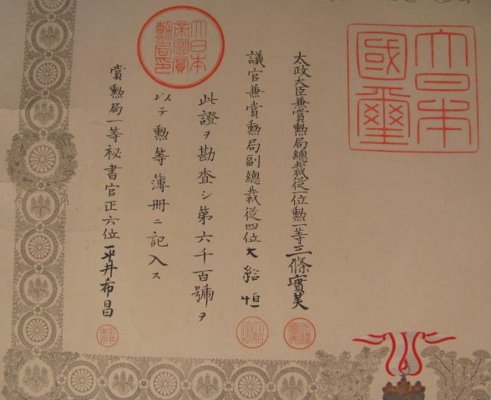 大日本
國璽
太政大臣兼賞勲局總裁從一位勲一等三條實美
議官兼賞勲局副總裁從四位大給恒
大日本
帝國賞
勲局印
此證ヲ勘査シ第六千百號ヲ
以テ勲等簿冊ニ記入ス
賞勲局一等祕書官正六位平井希昌